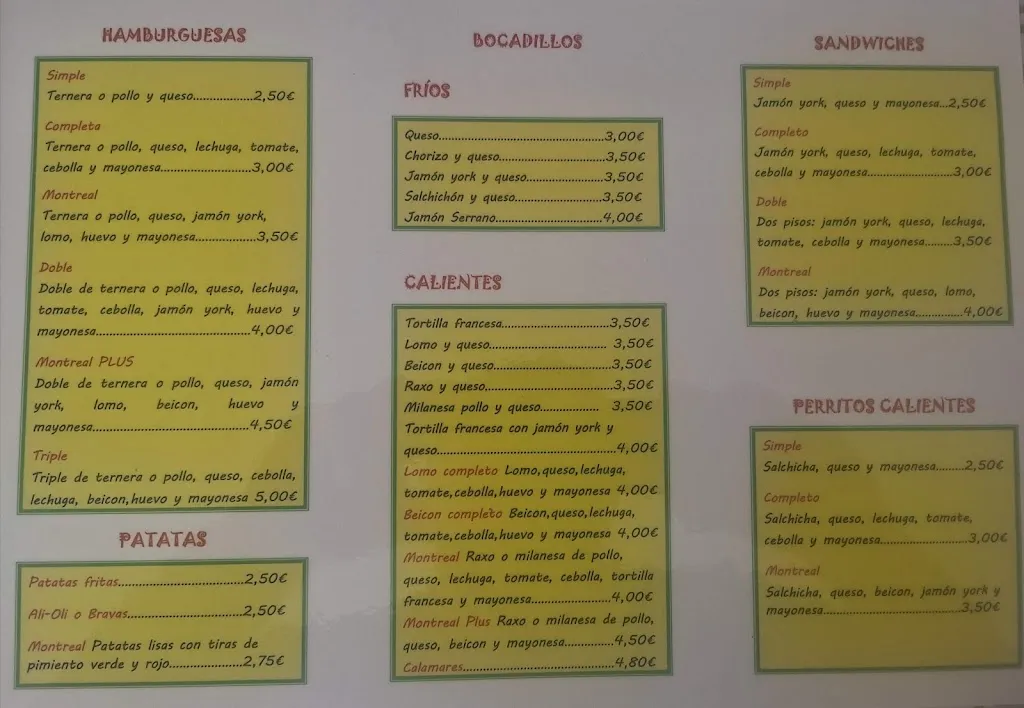 HAMBURGUESAS
Simple
Ternera o pollo y queso..................2,50€
Completa
Ternera o pollo, queso, lechuga, tomate,
cebolla y mayonesa...........................3,00€
Montreal
Ternera o pollo, queso, jamón york,
lomo, huevo y mayonesa..................3,50€
Doble
Doble de ternera o pollo, queso, lechuga,
tomate, cebolla, jamón york, huevo y
mayonesa..............................................4,00€
Montreal PLUS
Doble de ternera o pollo, queso, jamón
york, lomo, beicon, huevo y
mayonesa...............................................4,50€
Triple
Triple de ternera o pollo, queso, cebolla,
lechuga, beicon,huevo y mayonesa 5,00€
PATATAS
Patatas fritas......................................2,50€
Ali-Oli o Bravas..................................2,50€
Montreal Patatas lisas con tiras de
pimiento verde y rojo......................2,75€
BOCADILLOS
FRÍOS
Queso.................................................3,00€
Chorizo y queso................................3,50€
Jamón york y queso.......................3,50€
Salchichón y queso..........................3,50€
Jamón Serrano................................4,00€
CALIENTES
Tortilla francesa................................3,50€
Lomo y queso................................... 3,50€
Beicon y queso...................................3,50€
Raxo y queso......................................3,50€
Milanesa pollo y queso.................. 3,50€
Tortilla francesa con jamón york y
queso.....................................................4,00€
Lomo completo Lomo,queso,lechuga,
tomate,cebolla,huevo y mayonesa 4,00€
Beicon completo Beicon,queso,lechuga,
tomate,cebolla,huevo y mayonesa 4,00€
Montreal Raxo o milanesa de pollo,
queso, lechuga, tomate, cebolla, tortilla
francesa y mayonesa........................4,00€
Montreal Plus Raxo o milanesa de pollo,
queso, beicon y mayonesa...............4,50€
Calamares.............................................4,80€
SANDWICHES
Simple
Jamón york, queso y mayonesa...2,50€
Completo
Jamón york, queso, lechuga, tomate,
cebolla y mayonesa..........................3,00€
Doble
Dos pisos: jamón york, queso, lechuga,
tomate, cebolla y mayonesa........3,50€
Montreal
Dos pisos: jamón york, queso, lomo,
beicon, huevo y mayonesa..............4,00€
PERRITOS CALIENTES
Simple
Salchicha, queso y mayonesa........2,50€
Completo
Salchicha, queso, lechuga, tomate,
cebolla y mayonesa..........................3,00€
Montreal
Salchicha, queso, beicon, jamón york y
mayonesa.........................................3,50€